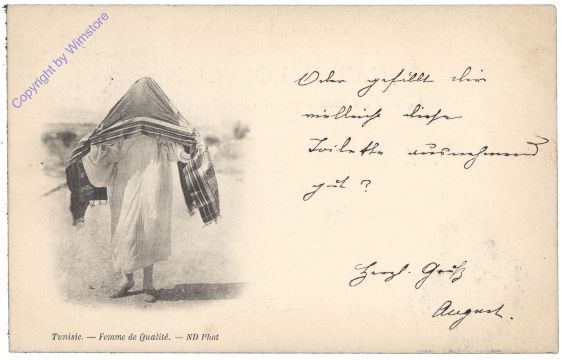 Copyright by Wimstore
Oder gefällt dir
vielleicht diese
Toilette ausnehmend
gut?
Herzl. Gruß
August.
Tunisie. — Femme de Qualité. — ND Phot